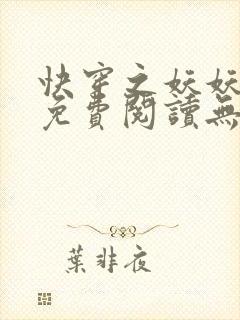 快穿之妖妖
免費閱讀無
葉非夜